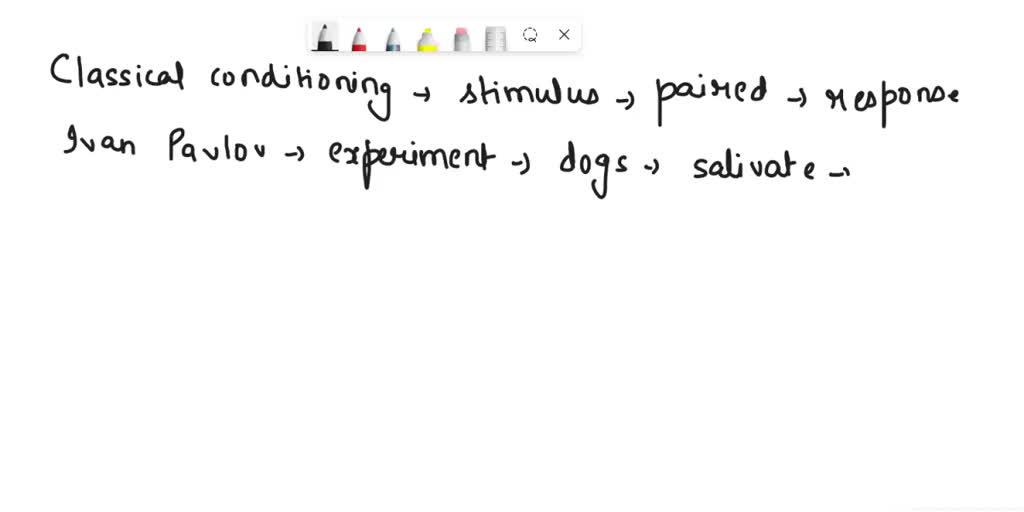 Classical conditioning → stimulus → paired → response
Ivan Pavlov → experiment → dogs → salivate →